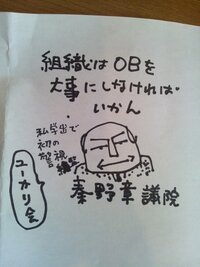 組織はOBを
大事にしなければ
いかん
私学出で
初の
警視
秦野章議院
ユーカリ会